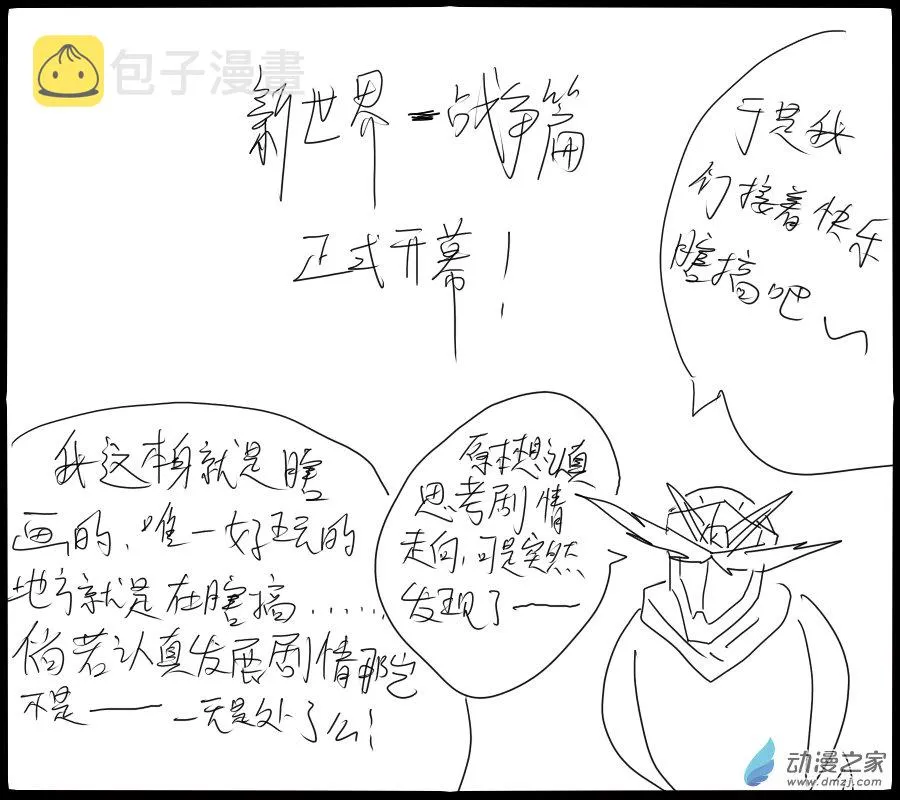 包子漫畫
新世界-战争篇
正式开幕！
原本想认真
思考剧情
走向，可是突然
发现了——
我这本身就是瞎
画的，唯一好玩的
地方就是在瞎搞……
倘若认真发展剧情那岂
不是——一无是处了么！
于是我
们接着快乐
瞎搞吧～
动漫之家
www.dmzj.com